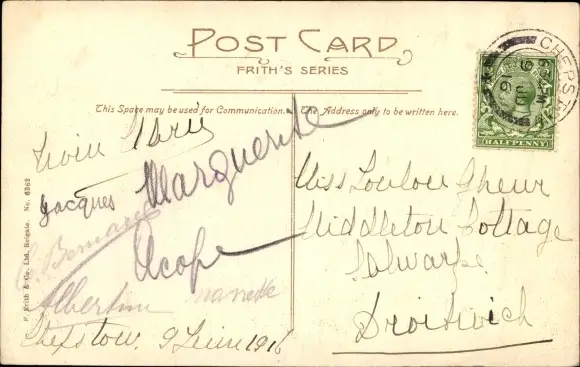 POST CARD
FRITH'S SERIES
This Space may be used for Communication.
The Address only to be written here.
CHEPST
16
HALFPENNY
Marguerite
Jacques
Bernard
Albertine
Nanette
Chepstow. 9 Juin 1916
F. Frith & Co., Ltd., Reigate. No. 6362
Miss Loulou
Middleton Cottage
Salwarpe
Droitwich